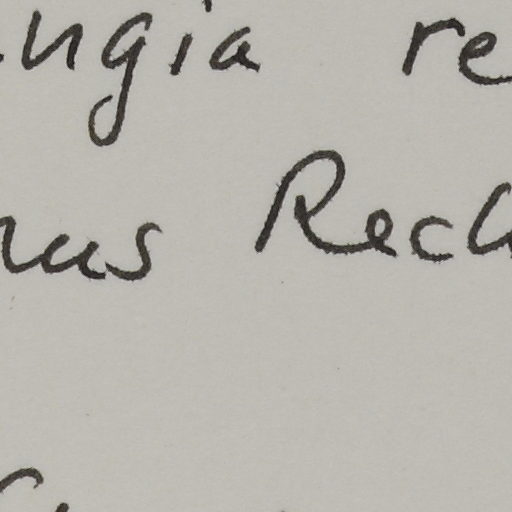 ngia re
us Rech